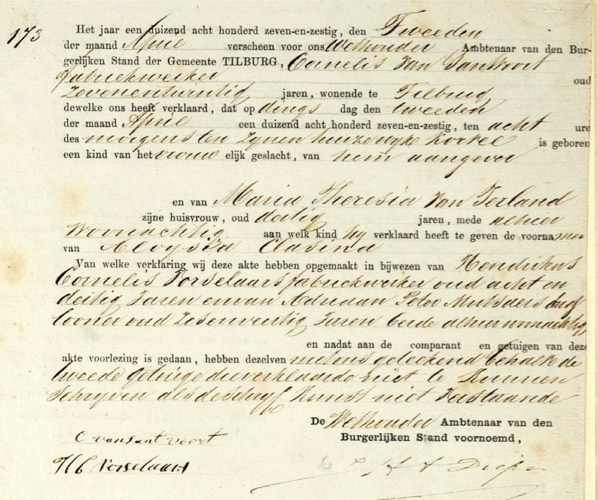 173
Het jaar een duizend acht honderd zeven-en-zestig, den Tweeden
der maand April verscheen voor ons Wethouder Ambtenaar van den Bur-
gerlijken Stand der Gemeente TILBURG, Cornelis Van Santvoort
fabriekwerker oud
Zevenentwintig jaren, wonende te Tilburg
dewelke ons heeft verklaard, dat op dings dag den tweeden
der maand April een duizend acht honderd zeven-en-zestig, ten acht ure
des morgens ten zynen huize wyk is geboren
een kind van het vrouwelijk geslacht, van hem aangever
en van Maria Theresia Van Ierland
zijne huisvrouw, oud dertig jaren, mede alhier
woonachtig aan welk kind hy verklaard heeft te geven de voornamen
van Aloysia Clasina
Van welke verklaring wij deze akte hebben opgemaakt in bijwezen van Hendrikus
Cornelis Vorselaars fabriekwerker oud acht en
dertig Jaren en van Adriaan Peter Mutsaers
oud Zesenveertig Jaren beide alhier woonachtig
en nadat aan de comparant en getuigen van deze
akte voorlezing is gedaan, hebben dezelven met ons geteekend behalve de
tweede getuige die verklaarde niet te kunnen
Schryven als de Schryf Kunst niet Verstaande
De Wethouder Ambtenaar van den
Burgerlijken Stand voornoemd,
C van Sant voort
H C Vorselaars